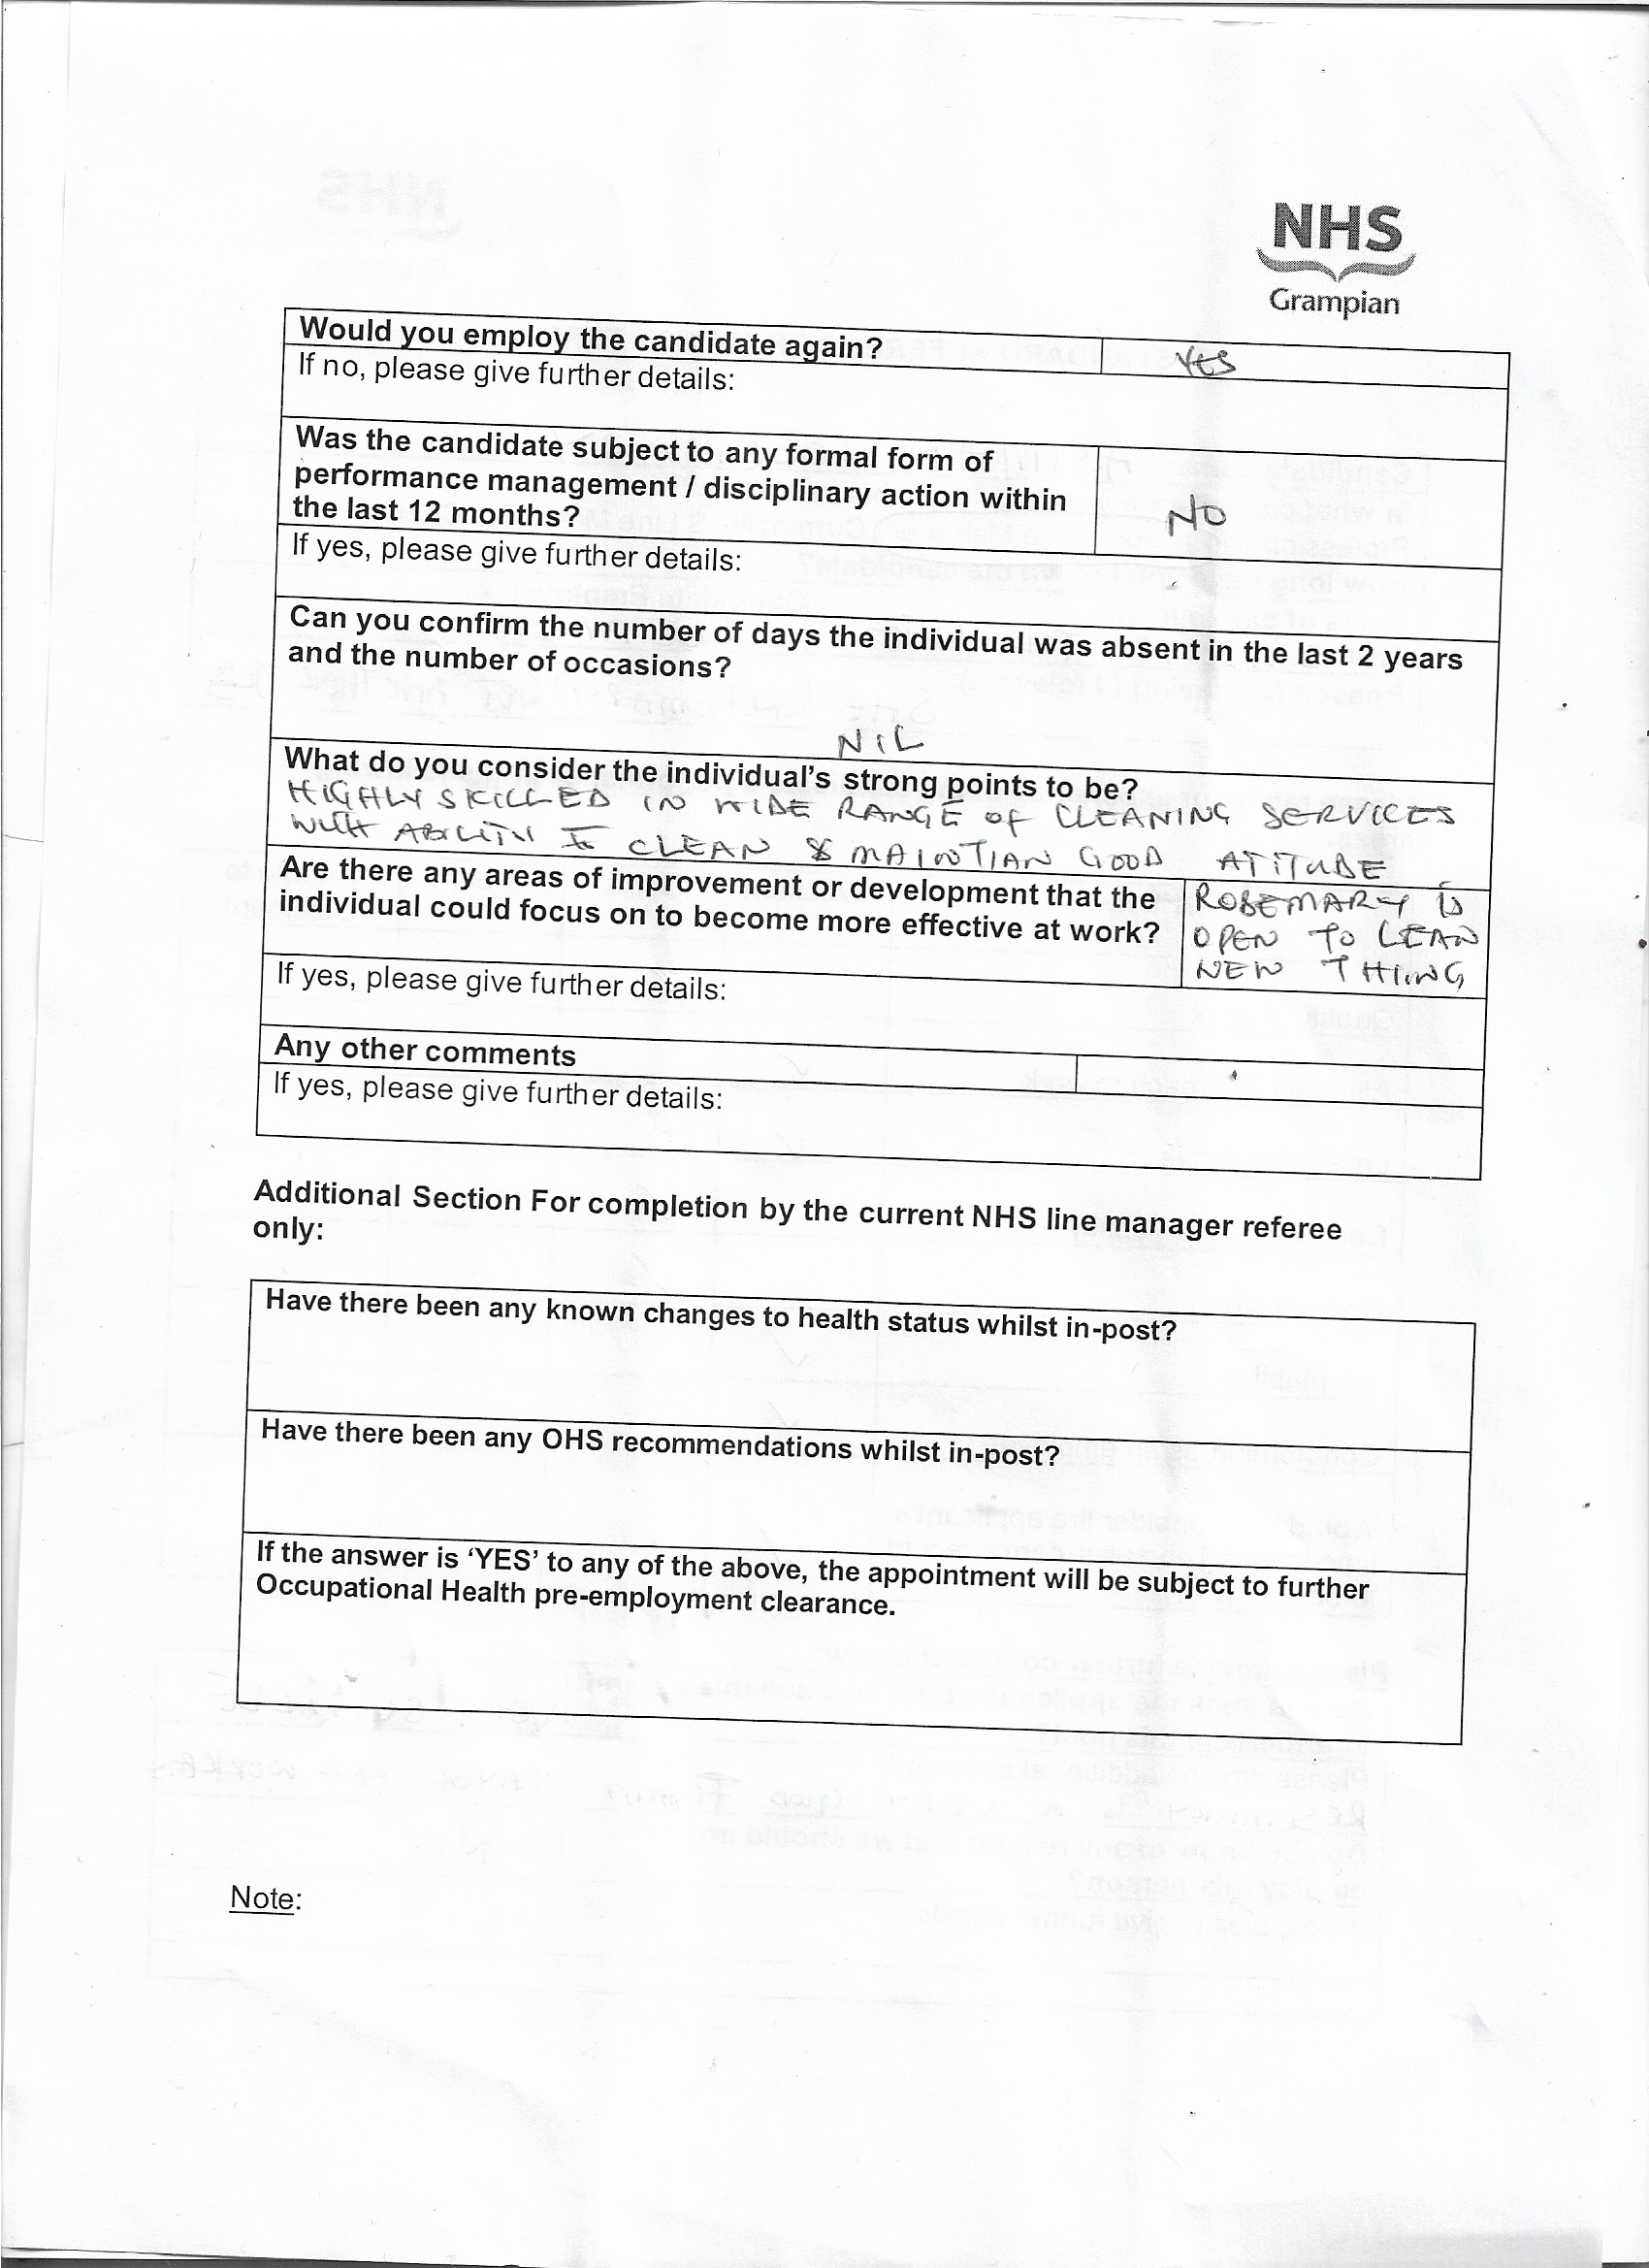 NHS
Grampian
Would you employ the candidate again?
YES
If no, please give further details:
Was the candidate subject to any formal form of
performance management / disciplinary action within
the last 12 months?
NO
If yes, please give further details:
Can you confirm the number of days the individual was absent in the last 2 years
and the number of occasions?
NIL
What do you consider the individual's strong points to be?
HIGHLY SKILLED IN WIDE RANGE OF CLEANING SERVICES
WITH ABILITY To CLEAN & MAINTIAN GOOD ATITUDE
Are there any areas of improvement or development that the
individual could focus on to become more effective at work?
ROSEMARY is
OPEN TO LEAN
NEW THING
If yes, please give further details:
Any other comments
If yes, please give further details:
Additional Section For completion by the current NHS line manager referee
only:
Have there been any known changes to health status whilst in-post?
Have there been any OHS recommendations whilst in-post?
If the answer is ‘YES’ to any of the above, the appointment will be subject to further
Occupational Health pre-employment clearance.
Note: